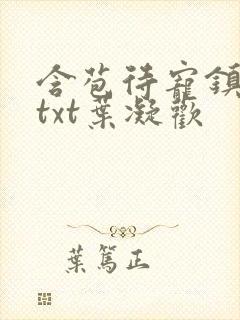 含苞待寵鎮
txt葉凝歡
葉篤正